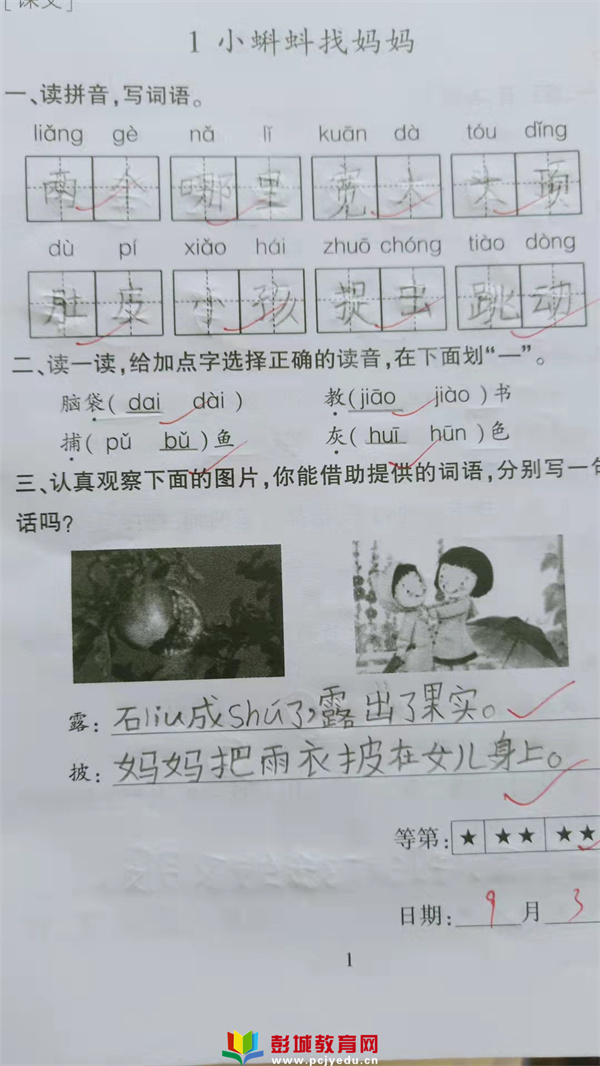 [课文]
1 小蝌蚪找妈妈
一、读拼音，写词语。
liǎng gè nǎ lǐ kuān dà tóu dǐng
两个 哪里 宽大 头顶
dù pí xiǎo hái zhuō chóng tiào dòng
肚皮 小孩 捉出 跳动
二、读一读，给加点字选择正确的读音，在下面划“—”。
脑袋( dai dài ) 教( jiāo jiào )书
捕( pǔ bǔ )鱼 灰( huī hūn )色
三、认真观察下面的图片，你能借助提供的词语，分别写一句
话吗？
露：石liu成shú了，露出了果实。
披：妈妈把雨衣披在女儿身上。
等第：★ ★★ ★★
日期：9月3
1
彭城教育网
www.pcjyedu.cn